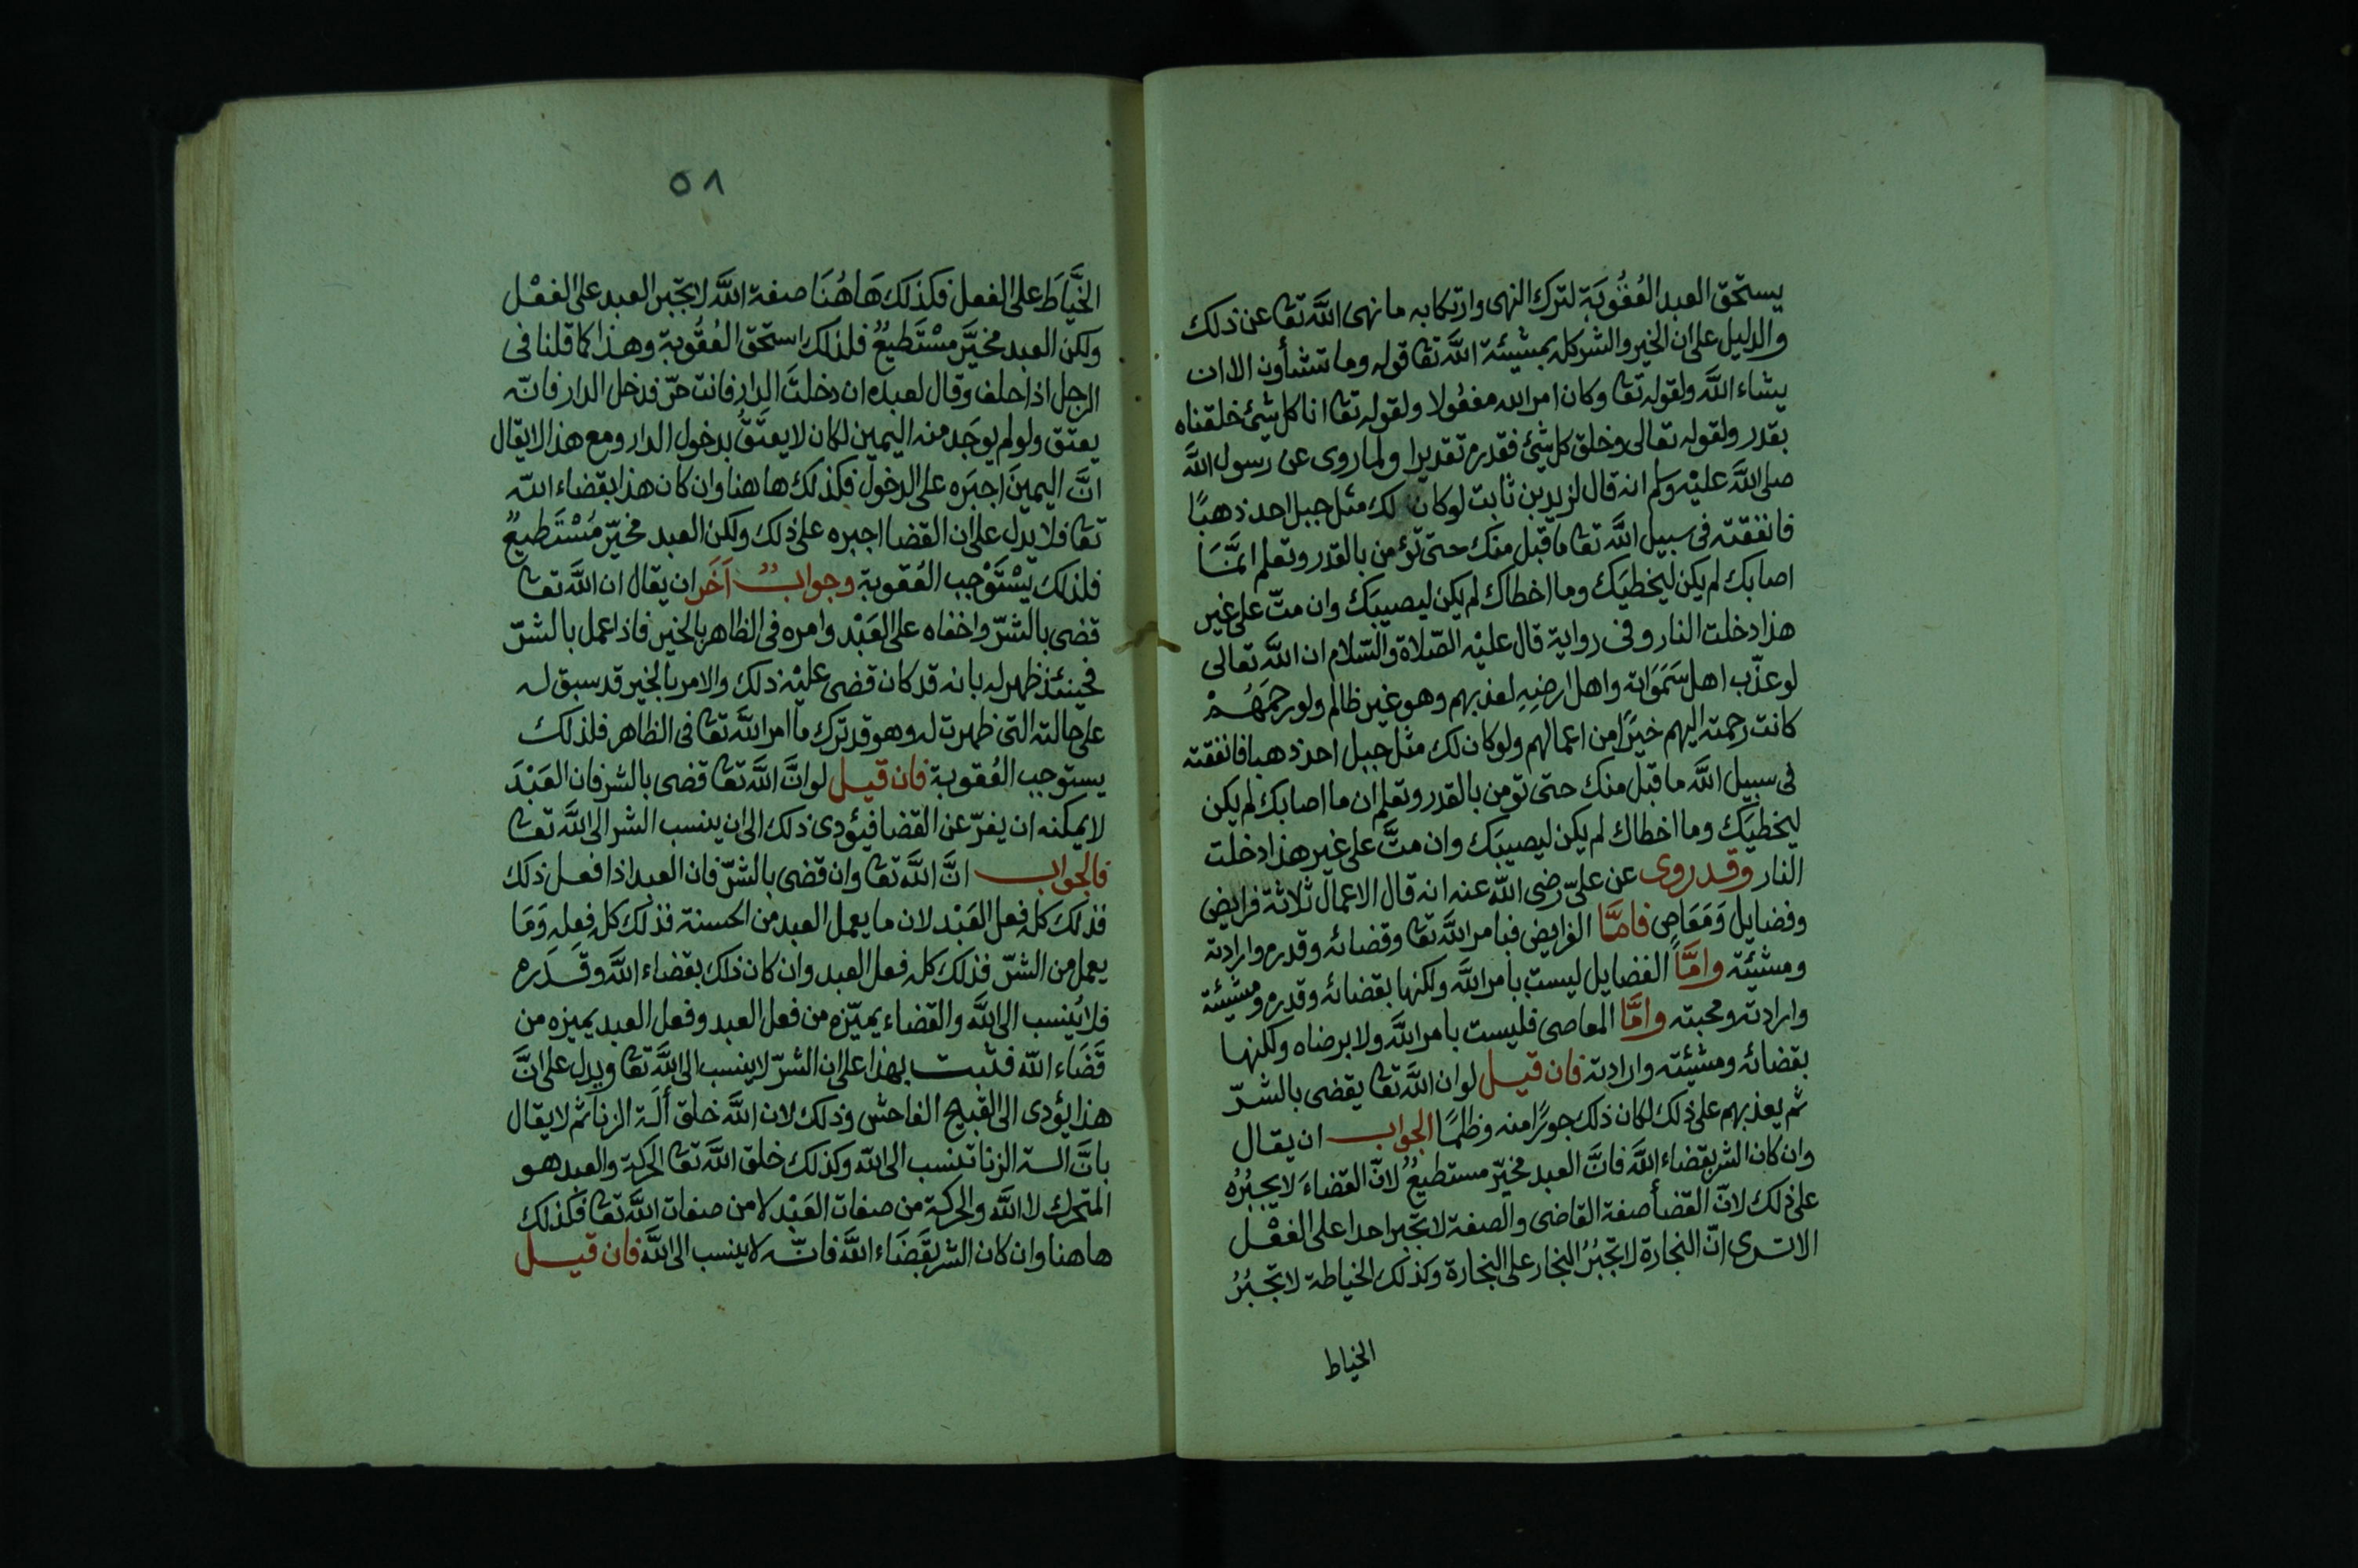 يستحق العبد العُقُوبَة لترك النهى وارتكابه ما نهى اللَّه تعا عن ذلك
والدليل على ان الخير والشر كله بمشيئة اللَّه تعا قوله وما تشاؤن الا ان
يشاء اللَّه ولقوله تعا وكان امر الله مفعُولا ولقوله تعا انا كل شيئ خلقناه
بقدر ولقوله تعالى وخلق كل شيئ فقدره تقديرا ولما روى عن رسول اللَّه
صلى اللَّه عليْه وسلم انه قال لزيد بن ثابت لو كان لك مثل جبل احد ذهبًا
فانفقته فى سبيل اللَّه تعا ما قبل منك حتى تؤمن بالقدر وتعلم انَّمَا
اصابك لم يكن ليخطيَك وما اخطاك لم يكن ليصيبَك وان متّ على غير
هذا دخلت النار وفى رواية قال عليْه الصّلاة والسّلام ان اللَّه تعالى
لو عذّب اهل سَمَوَاته واهل ارضِهِ لعذبهم وهو غير ظالم ولو رحمَهُمْ
كانت رحمته اليهم خيرًا من اعمالهم ولو كان لك مثل جبل احد ذهبا فانفقته
فى سبيل اللَّه ما قبل منك حتى تومن بالقدر وتعلم ان ما اصابك لم يكن
ليخطيَك وما اخطاك لم يكن ليصيبَك وان متَّ على غير هذا دخلت
النار وقد روى عن علىّ رضى اللّه عنه انه قال الاعمال ثلاثة فرايض
وفضايل وَمَعَاصٍ فامَّا الفرايض فبامر اللَّه تعا وقضائه وقدره وارادته
ومشيئته وامَّا الفضايل ليست بامر اللَّه ولكنها بقضائه وقدره ومشيئته
وارادته ومحبته وامَّا المعاصى فليست بامر اللَّه ولا برضاه ولكنها
بقضائه ومشيئته وارادته فان قيل لو ان اللَّه تعا يقضى بالشرّ
ثم يعذبهم على ذلك لكان ذلك جورًا منه وظلمًا الجواب ان يقال
وان كان الشر بقضاء اللَّه فانَّ العبد مخيّر مستطيعٌ لانّ القضاءَ لا يجبُرُه
على ذلك لانّ القضأ صفة القاضى والصفة لا تجبر احدا على الفعْل
الا ترى انّ النجارة لا تجبُرُ النجار على النجارة وكذلك الخياطة لا تجبُرُ
الخياط
٥٨
الخَّياطَ على الفعل فكذلك هَاهُنَا صفة اللَّه لا تجبر العبد على الفعْل
ولكن العبد مخيَّر مسْتَطيعٌ فلذلك استحق العُقُوبة وهذا كما قلنا فى
الرجل اذا حلف وقال لعبده ان دخلتَ الدار فانت حرّ فدخل الدار فانّه
يعتق ولو لم يوجَد منه اليمين لكان لا يعتَقُ بدخول الدار ومع هذا لا يقال
انَّ اليمينَ اجبَره على الدخول فكذلك هاهنا وان كان هذا بقضاء اللّه
تعا فلا يدل على ان القضا اجبره على ذلك ولكن العبد مخيّر مُسْتَطيعٌ
فلذلك يَسْتَوْجب العُقوبة وجوابٌ آخَر ان يقال ان اللَّه تعا
قضى بالشرّ واخفاه على العَبْد وامره فى الظاهر بالخير فاذا عمل بالشرّ
فحينئذ ظهر له بانه قد كان قضى عليْه ذلك والامر بالخير قد سبق له
على حالته التى ظهرت له وهو قد ترك ما امر اللَّه تعا فى الظاهر فلذلك
يستوجب العُقوبة فان قيل لو انَّ اللَّه تعا قضى بالشر فان العَبْدَ
لا يمكنه ان يفرّ عن القضا فيؤدى ذلك الى ان ينسب الشر الى اللَّه تعا
فالجواب انَّ اللَّه تعا وان قضى بالشرّ فان العبد اذا فعل ذلك
فذلك كله فعل العَبْد لان ما يعمل العبد من الحسنة فذلك كله فِعله وَمَا
يعمل من الشرّ فذلك كله فعل العبد وان كان ذلك بقضاء اللَّه وقَدَره
فلا يُنسب الى اللَّه والقضاء يميّزه من فعل العبد وفعل العبد يميزه من
قَضَاء اللّه فثبت بهذا على ان الشرّ لا ينسب الى اللَّه تعا ويدل على انَّ
هذا يؤدى الى القبيح الفاحش وذلك لان اللَّه خلق ألَة الزنا ثم لا يقال
بانَّ الة الزنا تنسب الى اللّه وكذلك خلق اللَّه تعا الحركة والعبد هو
المتحرك لا اللَّه والحركة من صفات العَبْد لا من صفات اللَّه تعا فكذلك
هاهنا وان كان الشر بقَضَاء اللَّه فانّه لا ينسب الى اللَّه فان قيل